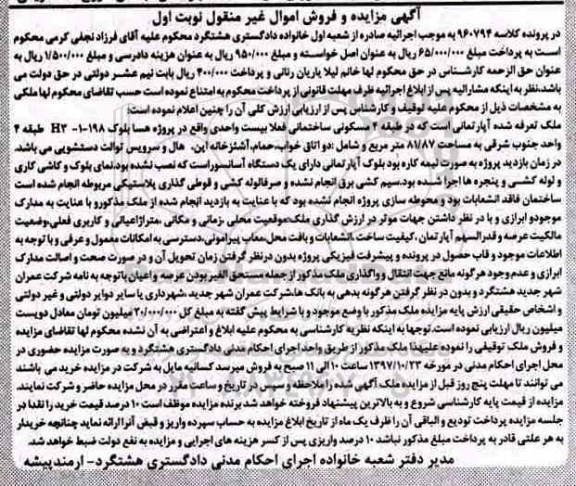 آگهی مزایده و فروش اموال غیر منقول نوبت اول
در پرونده کلاسه ۹۶۰۷۹۴ به موجب اجرائیه صادره از شعبه اول خانواده دادگستری هشتگرد محکوم علیه آقای فرزاد نجفی کرمی محکوم
است به پرداخت مبلغ ۶۵/۰۰۰/۰۰۰ ریال به عنوان اصل خواسته و مبلغ ۹۵۰/۰۰۰ ریال به عنوان هزینه دادرسی و مبلغ ۱/۵۰۰/۰۰۰ ریال به
عنوان حق الزحمه کارشناس در حق محکوم لها خانم لیلا یاریان رنانی و پرداخت ۴۰۰/۰۰۰ ریال بابت نیم عشر دولتی در حق دولت می
باشد،نظر به اینکه مشارالیه پس از ابلاغ اجرائیه ظرف مهلت قانونی از پرداخت محکوم به امتناع نموده است حسب تقاضای محکوم لها ملکی
به مشخصات ذیل از محکوم علیه توقیف و کارشناس پس از ارزیابی ارزش کلی آن را چنین اعلام نموده است:
ملک تعرفه شده آپارتمانی است که در طبقه ۴ مسکونی ساختمانی فعلا بیست واحدی واقع در پروژه هسا بلوک ۱۹۸-۱- H۳ طبقه ۴
واحد جنوب شرقی به مساحت ۸۱/۸۷ متر مربع و شامل :دو اتاق خواب،حمام،آشپزخانه اپن، هال و سرویس توالت دستشویی می باشد.
در زمان بازدید پروژه به صورت نیمه کاره بود بلوک آپارتمانی دارای یک دستگاه آسانسور است که نصب نشده بود.نمای بلوک و کاشی کاری
و لوله کشی و پنجره ها اجرا شده بود.سیم کشی برق انجام نشده و صرفا لوله کشی و قوطی گذاری پلاستیکی مربوطه انجام شده است
ساختمان فاقد انشعابات بود و محوطه سازی پروژه انجام نشده بود که با عنایت به بازدید انجام شده از ملک مذکور با عنایت به مدارک
موجود و ابرازی و با در نظر داشتن جهات موثر در ارزش گذاری ملک،موقعیت محلی ،زمانی و مکانی ،متراژ اعیانی و کاربری فعلی،وضعیت
مالکیت عرصه و قدرالسهم آپارتمان ،کیفیت ساخت ،انشعابات و بافت محل،معابر پیرامونی،دسترسی به امکانات معمول و عرفی و با توجه به
اطلاعات موجود و قاب حصول در پرونده و پیشرفت فیزیکی پروژه بدون درنظر گرفتن زمان تحویل آن و در صورت صحت و اصالت مدارک
ابرازی و عدم وجود هرگونه مانع جهت انتقال و واگذاری ملک مذکور از جمله مستحق الغیر بودن عرصه و اعیان باتوجه به نامه شرکت عمران
شهر جدید هشتگرد و بدون در نظر گرفتن هرگونه بدهی به بانک ها،شرکت عمران شهر جدید ،شهرداری یا سایر دوایر دولتی و غیر دولتی
و اشخاص حقیقی ارزش پایه مزایده ملک مذکور با وضع موجود و با شرایط پیش گفته به مبلغ کل ۲۰/۰۰۰/۰۰۰ میلیون تومان معادل دویست
میلیون ریال ارزیابی نموده است.توجها به اینکه نظریه کارشناسی به محکوم علیه ابلاغ و اعتراضی به آن نشده محکوم لها تقاضای مزایده
و فروش ملک توقیفی را نموده علیهذا ملک مذکور از طریق واحد اجرای احکام مدنی دادگستری هشتگرد و به صورت مزایده حضوری در
محل اجرای احکام مدنی در مورخه ۱۳۹۷/۱۰/۲۳ ساعت ۱۰ الی ۱۱ صبح به فروش میرسد کسانیه مایل به شرکت در مزایده خرید می باشند
می توانند تا مهلت پنج روز قبل از مزایده ملک آگهی شده را ملاحظه و سپس در تاریخ و ساعت مقرر در محل مزایده حاضر و شرکت نمایند.
مزایده از قیمت پایه کارشناسی شروع و به بالاترین پیشنهاد فروخته خواهد شد.برنده مزایده موظف است ۱۰ درصد قیمت خرید را نقدا در
جلسه مزایده پرداخت تودیع و الباقی آن را ظرف یک ماه از تاریخ ابلاغ مزایده به حساب سپرده واریز و قبض آنرا ارائه نماید چنانچه خریدار
به هر علتی قادر به پرداخت مبلغ مذکور نباشد ۱۰ درصد واریزی پس از کسر هزینه های اجرایی و مزایده به نفع دولت ضبط خواهد شد.
مدیر دفتر شعبه خانواده اجرای احکام مدنی دادگستری هشتگرد- ارمندپیشه